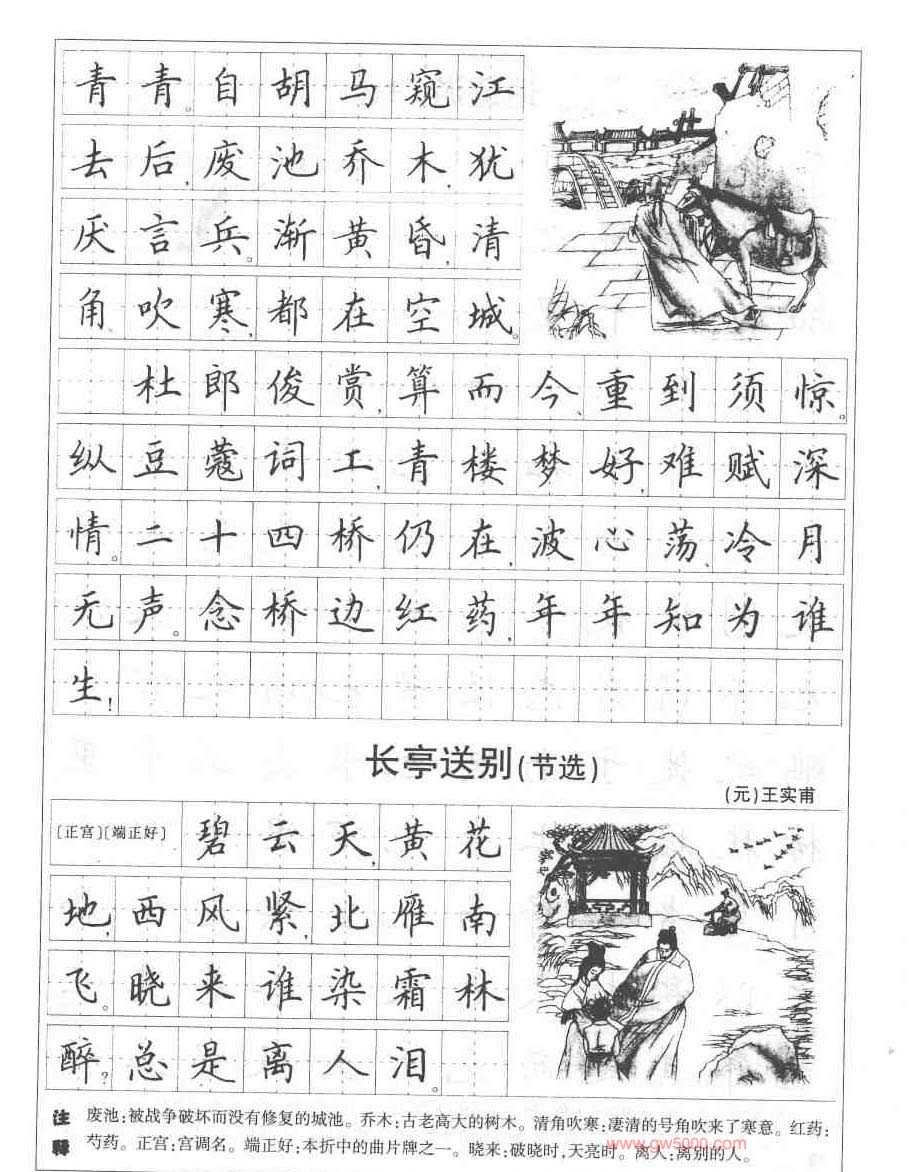 青青。自胡马窥江
去后,废池乔木,犹
厌言兵。渐黄昏,清
角吹寒,都在空城。
杜郎俊赏,算而今、重到须惊。
纵豆蔻词工,青楼梦好,难赋深
情。二十四桥仍在,波心荡、冷月
无声。念桥边红药,年年知为谁
生!
长亭送别(节选)
(元)王实甫
〔正宫〕〔端正好〕碧云天,黄花
地,西风紧,北雁南
飞。晓来谁染霜林
醉?总是离人泪。
注释
废池:被战争破坏而没有修复的城池。乔木:古老高大的树木。清角吹寒:凄清的号角吹来了寒意。红药:
芍药。正宫:宫调名。端正好:本折中的曲片牌之一。晓来:破晓时,天亮时。离人:离别的人。
www.gw5000.com